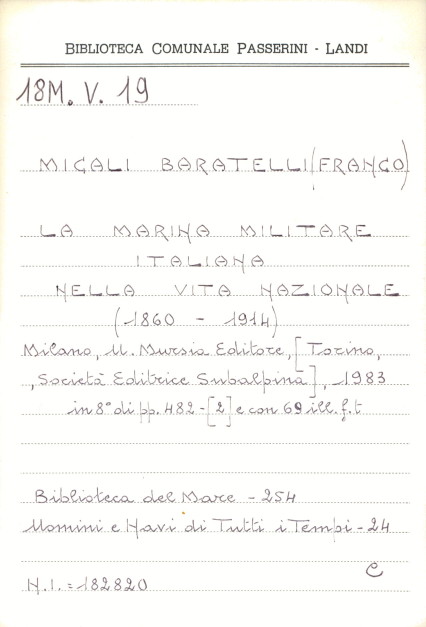 BIBLIOTECA COMUNALE PASSERINI - LANDI
18M. V. 19
MICALI BARATELLI (FRANCO)
LA MARINA MILITARE
ITALIANA
NELLA VITA NAZIONALE
(1860 - 1914)
Milano, U. Mursia Editore, [Torino,
, Società Editrice Subalpina], 1983
in 8° di pp. 482-[2] e con 69 ill. f.t
Biblioteca del Mare - 254
Uomini e Navi di Tutti i Tempi - 24
C
N.I. = 182820